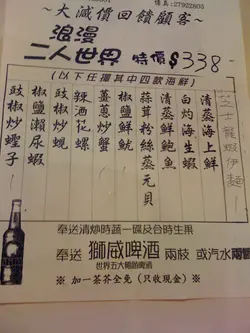 ~大減價回饋顧客~
浪漫
二人世界 特價$338-
(以下任擇其中四款海鮮)
芝士龍蝦伊麵
清蒸海上鮮
白灼海生蝦
清蒸鮮鮑魚
蒜茸粉絲蒸元貝
椒鹽鮮魷
薑蔥炒蟹
辣酒花螺
豉椒炒蜆
椒鹽瀨尿蝦
豉椒炒蟶子
奉送清炒時蔬一碟及合時生果
奉送 獅威啤酒 兩枝 或汽水兩
世界五大暢銷啤酒
※ 加一茶芥全免 (只收現金) ※